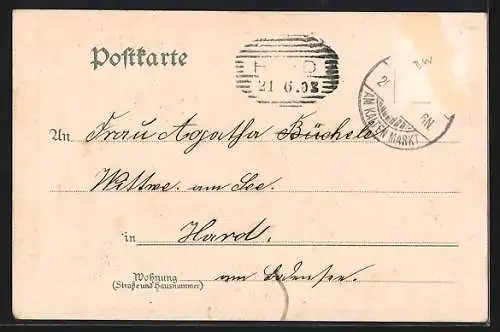 Postkarte
21 6.08
AM KARLEN MARKT
An Frau Agatha Büchele
Wittwe. am See.
in Hard.
Wohnung am Bodensee.
(Straße und Hausnummer)